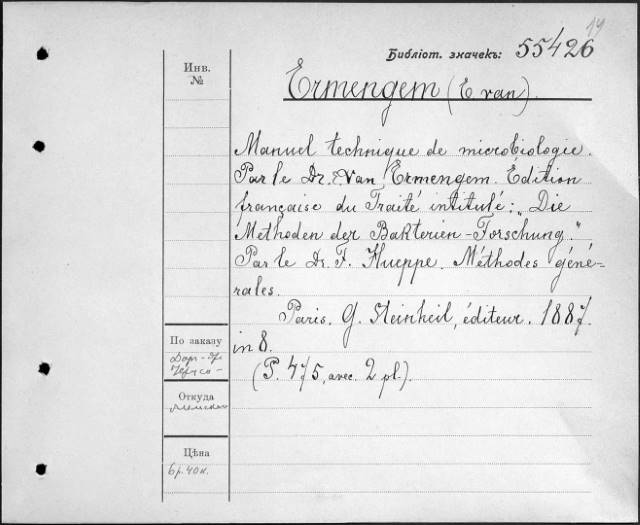 14
Библіот. значекъ: 55426
Инв.
№
Ermengem (E van).
Manuel technique de microbiologie.
Par le Dr. E. Van Ermengem. Édition
française du Traité intitulé: „Die
Methoden der Bakterien-Forschung."
Par le Dr. F. Hueppe. Méthodes géné-
rales.
Paris. G. Steinheil, éditeur. 1887.
in 8.
(P. 475, avec. 2 pl.).
По заказу
Откуда
Цѣна
6 р. 40 к.